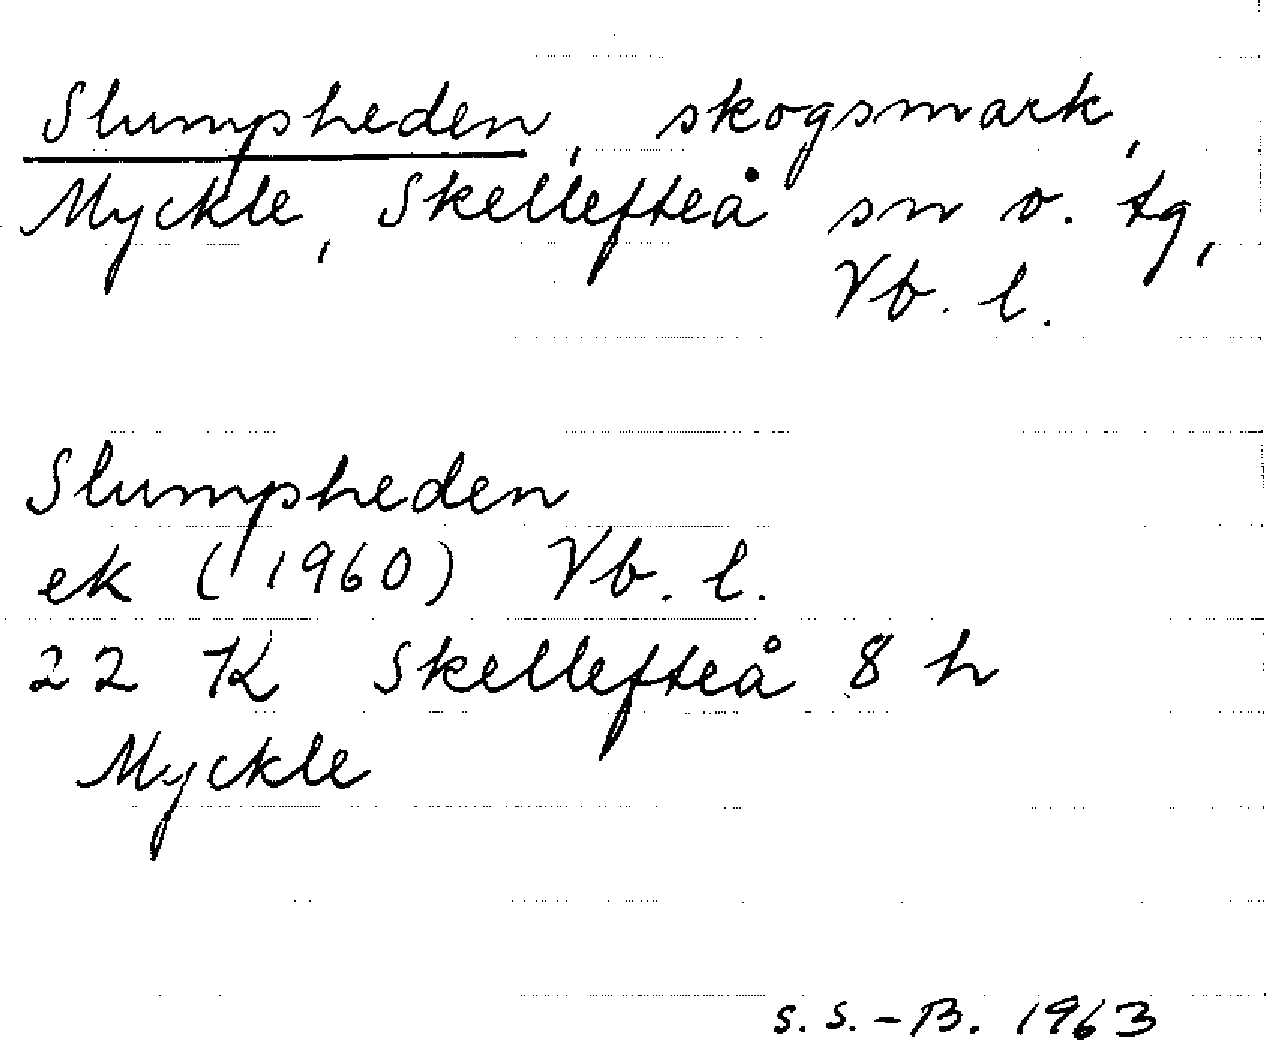 Slumpheden, skogsmark,
Myckle, Skellefteå sn o. tg,
Vb. l.
Slumpheden
ek (1960) Vb. l.
22 K Skellefteå 8 h
Myckle
S. S.-B. 1963